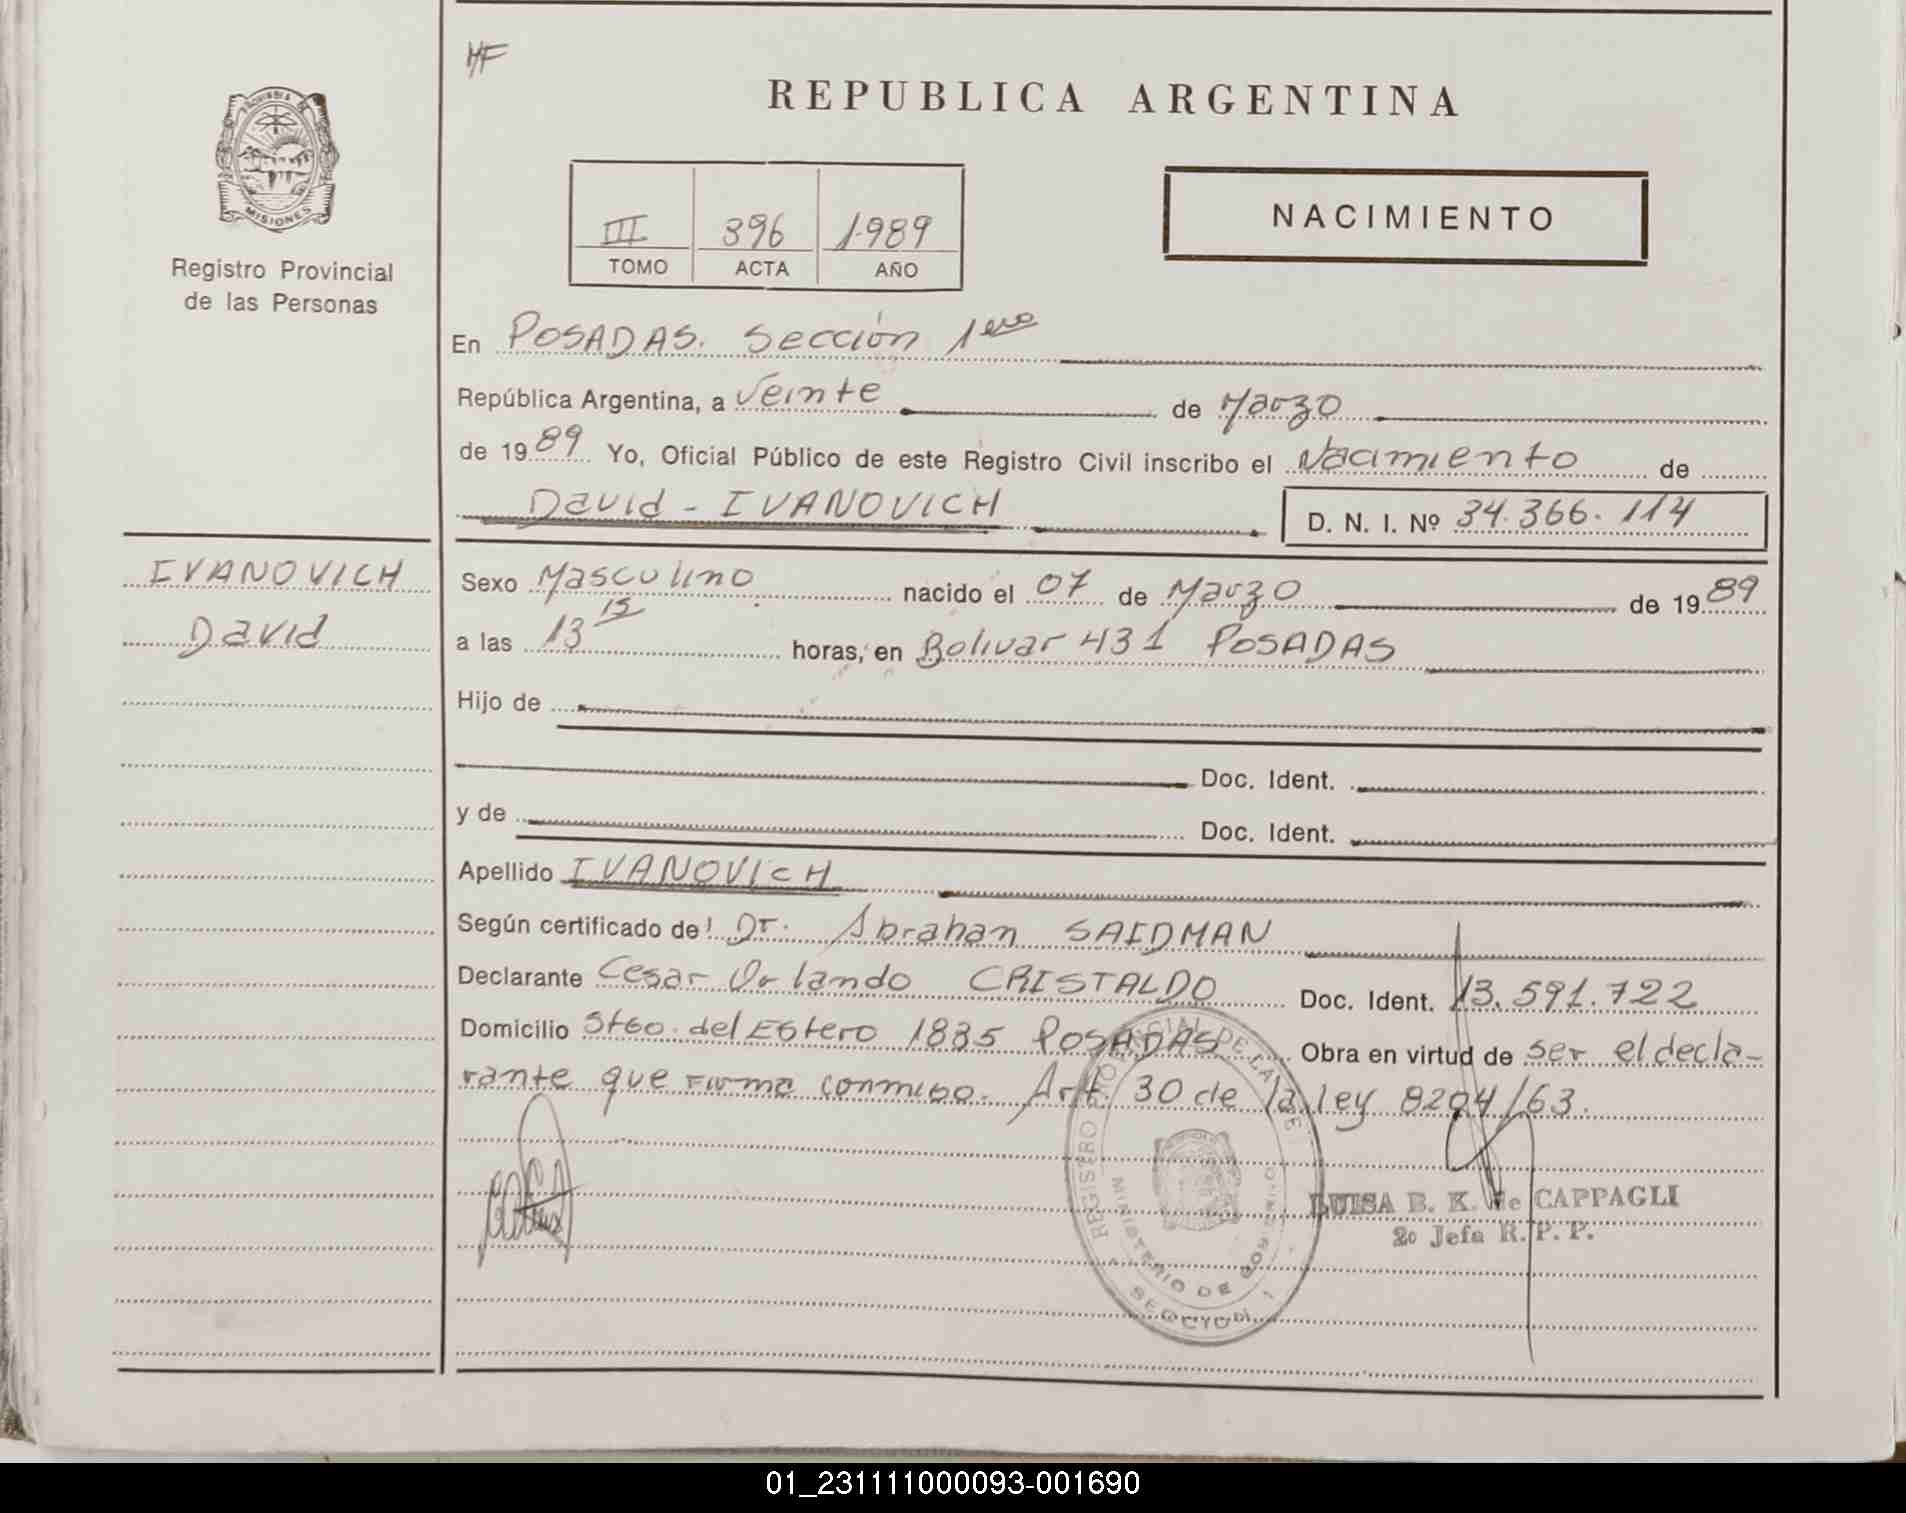 MF
REPUBLICA ARGENTINA
PROVINCIA DE
MISIONES
Registro Provincial
de las Personas
III 396 1.989
TOMO ACTA AÑO
NACIMIENTO
En POSADAS. Sección 1era
República Argentina, a Veinte de Marzo
de 1989 Yo, Oficial Público de este Registro Civil inscribo el Nacimiento de
David - IVANOVICH D. N. I. Nº 34.366.114
IVANOVICH
David
Sexo Masculino nacido el 07 de Marzo de 1989
a las 13 15 horas, en Bolivar 431 POSADAS
Hijo de
Doc. Ident.
y de Doc. Ident.
Apellido IVANOVICH
Según certificado de Dr. Abrahan SAIDMAN
Declarante Cesar Orlando CRISTALDO Doc. Ident. 13.591.722
Domicilio Stgo. del Estero 1835 POSADAS Obra en virtud de ser el decla-
rante que firma conmigo. Art. 30 de la ley 8204/63.
REGISTRO PROVINCIAL DE LAS PE
MINISTERIO DE GOBIERNO
SECCION 1
LUISA B. K. de CAPPAGLI
2º Jefa R. P. P.
01_231111000093-001690